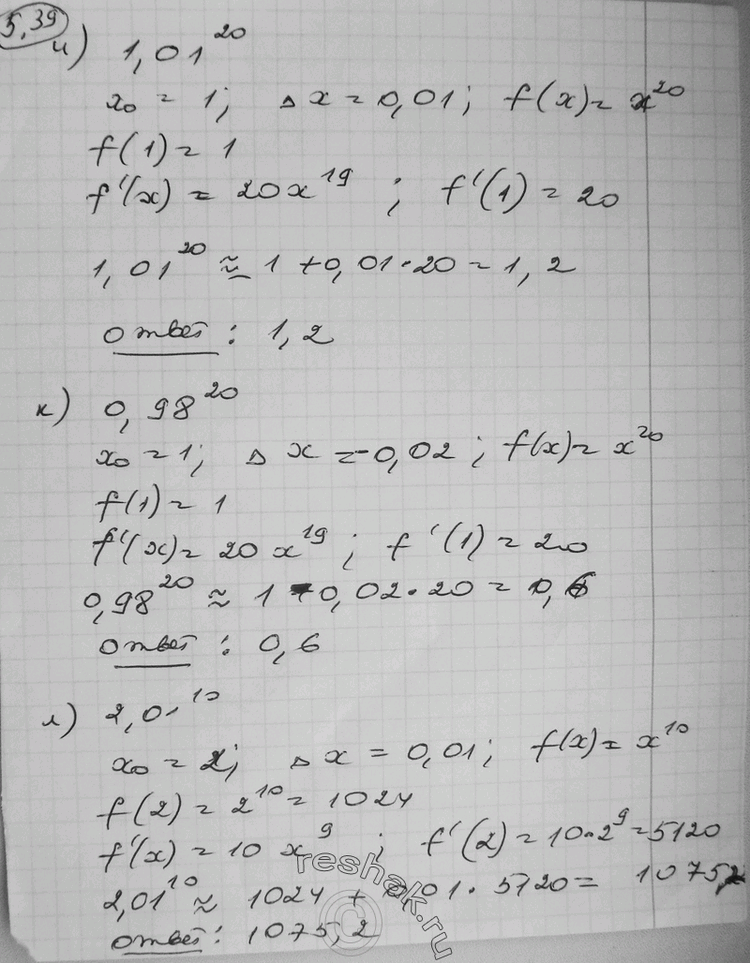 5,39
и) 1,01²⁰
x₀ = 1; Δx = 0,01; f(x) = x²⁰
f(1) = 1
f'(x) = 20x¹⁹ ; f'(1) = 20
1,01²⁰ ≈ 1 + 0,01·20 = 1,2
ответ: 1,2
к) 0,98²⁰
x₀ = 1; Δx = -0,02; f(x) = x²⁰
f(1) = 1
f'(x) = 20x¹⁹ ; f'(1) = 20
0,98²⁰ ≈ 1 - 0,02·20 = 0,6
ответ: 0,6
л) 2,01¹⁰
x₀ = 2; Δx = 0,01; f(x) = x¹⁰
f(2) = 2¹⁰ = 1024
f'(x) = 10x⁹ ; f'(2) = 10·2⁹ = 5120
2,01¹⁰ ≈ 1024 + 0,01·5120 = 1075,2
ответ: 1075,2
reshak.ru
©